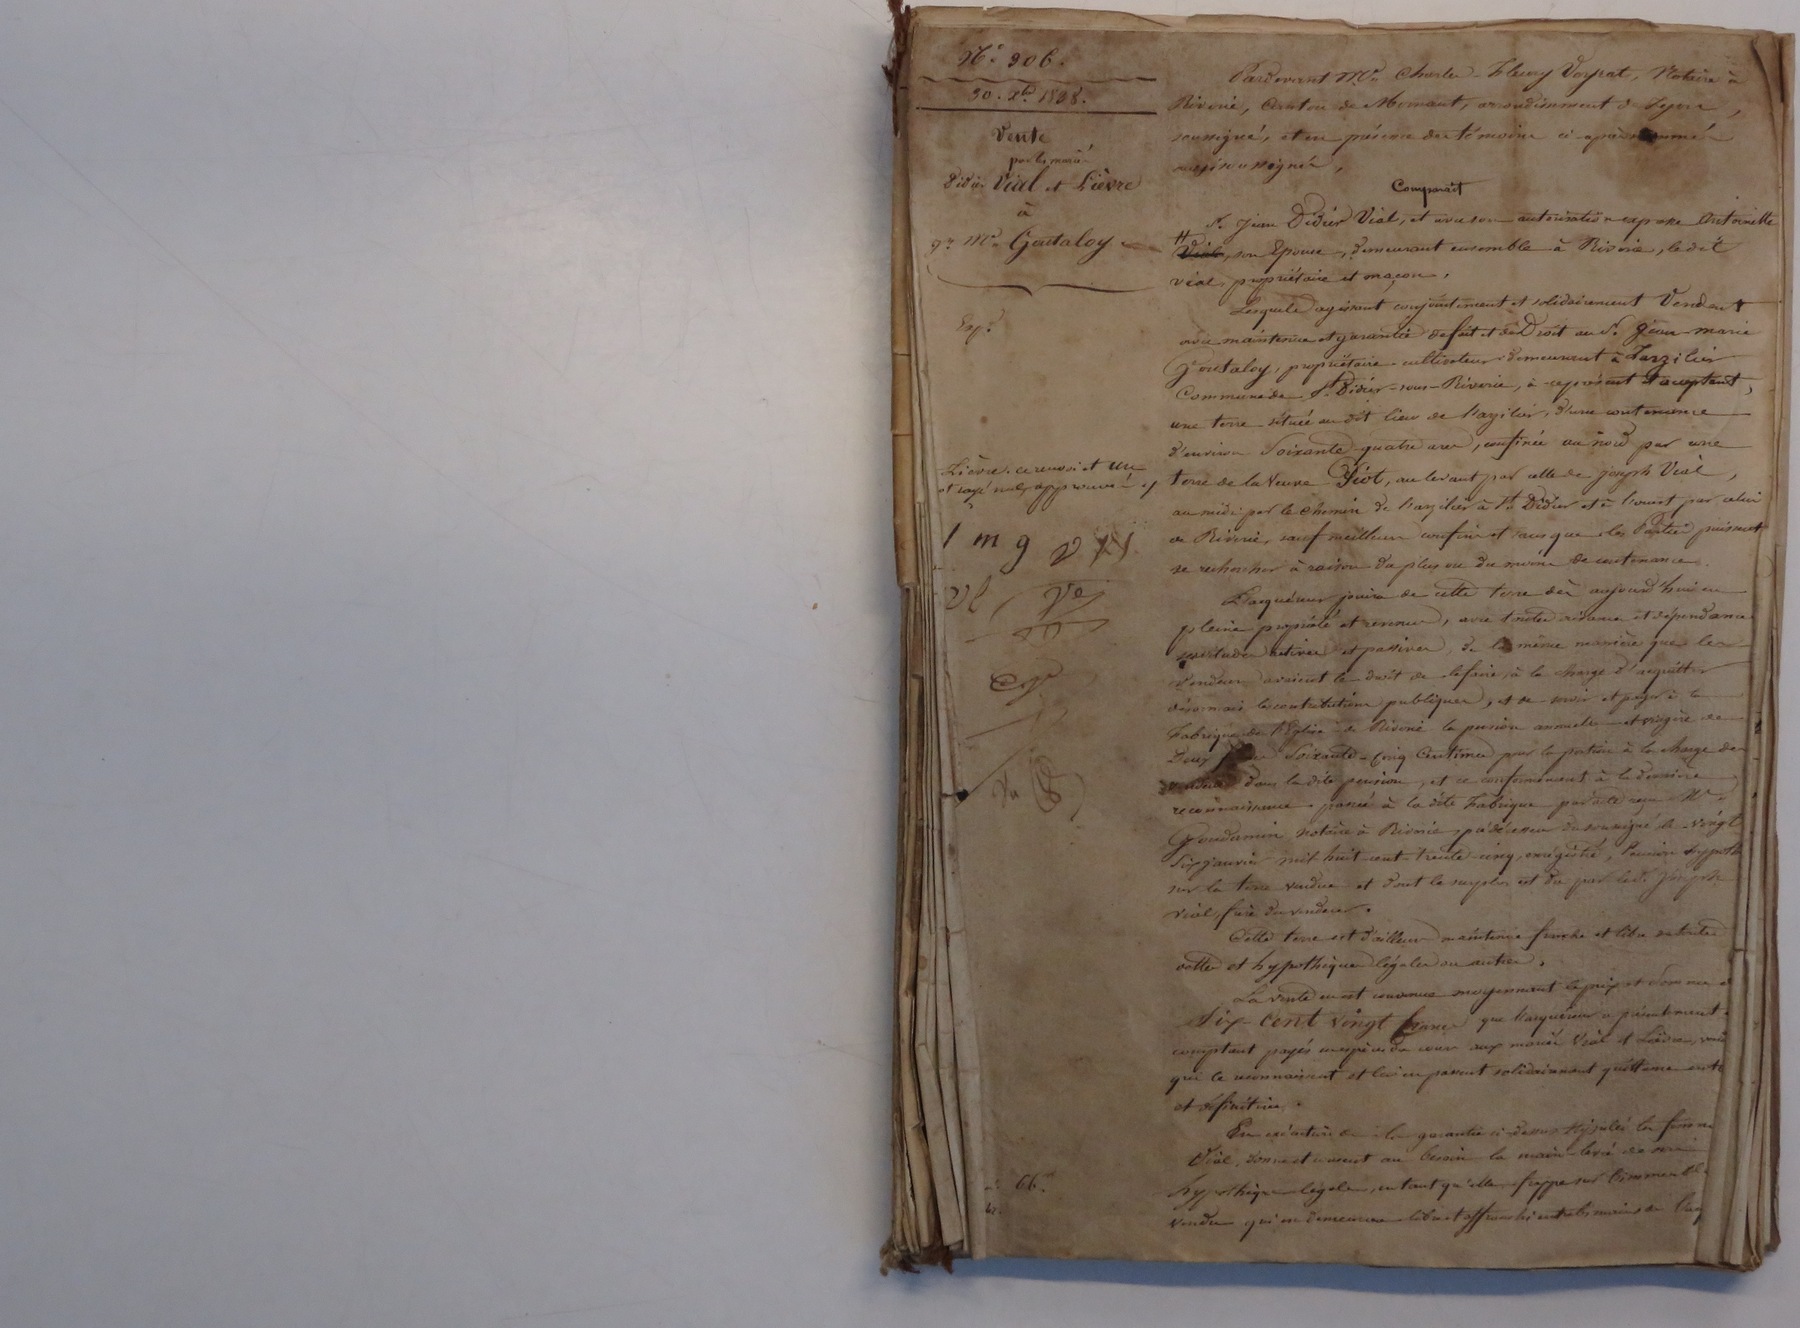 N.° 306.
30. Xbre 1838.
Vente
par les mariés
Didier Vial et Lièvre
à
Jn Mie Goutaloy
Exp.on
Lièvre. ce renvoi et un
mot rayé nul, approuvé
1 m g
66.
Pardevant Me Charles-Fleury Voyrat, Notaire à
Riverié, Canton de Mornant, arrondissement de Lyon,
soussigné, et en présence des témoins ci-après nommés
aussi soussignés,
Comparait
Sr. Jean Didier Vial, et sous son autorisation expresse Antoinette
Vial, son Epouse, demeurant ensemble à Riverie, le dit
Vial, propriétaire et maçon,
Lesquels agissant conjointement et solidairement Vendent
avec maintenue et garantie de fait et de Droit au Sr. Jean-marie
Goutaloy, propriétaire-cultivateur demeurant à Larzilier
Commune de St. Didier-sous-Riverie, à ce présent et acceptant,
une terre située au dit lieu de Larzilier, d'une contenance
d'environ Soixante-quatre ares, confinée au nord par une
terre de la Veuve Fiot, au levant par celle de joseph Vial,
au midi par le Chemin de Larzilier à St. Didier et à l'ouest par celui
de Riverie, sauf meilleurs confins et sans que les Parties puissent
se rechercher à raison du plus ou du moins de contenance.
L'acquéreur jouira de cette terre dès aujourd'hui en
pleine propriété et revenus, avec toutes aisances et dépendances
servitudes actives et passives, de la même manière que les
Vendeurs avaient le droit de le faire, à la charge d'acquitter
désormais les contributions publiques, et de servir et payer à la
Fabrique de l'Eglise de Riverie la pension annuelle et viagère de
Deux francs Soixante-cinq Centimes pour la portion à la charge des
vendeurs dans la dite pension, et ce conformément à la dernière
reconnaissance passée à la dite Fabrique par acte reçu Me
notaire à Riverie, prédécesseur du soussigné, le vingt
Six janvier mil huit cent trente-cinq, enregistré, Pension hypoth
sur la terre vendue et dont le surplus est dû par le dt. Joseph
Vial, frère du vendeur.
Cette terre est d'ailleurs maintenue franche et libre de toutes
dettes et hypothèques légales ou autres.
La vente en est convenue moyennant le prix et somme de
Six-cent vingt francs que l'acquéreur a présentement
comptant payés en espèces de cours aux mariés Vial et Lièvre,
qui le reconnaissent et lui en passent solidairement quittance
et définitive.
En exécution de la garantie ci-dessus stipulée la femme
Vial, donne et consent au besoin la main-levée de son
hypothèque légale, en tant qu'elle frappe sur l'immeuble
vendu qui en demeurera libre et affranchi entre les mains de l'acq